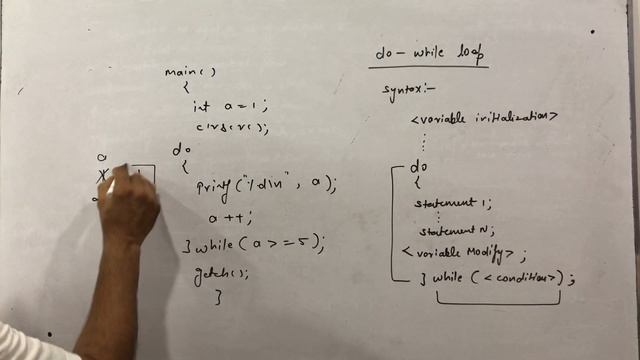 main()
{
int a = 1;
clrscr();
do
{
printf("%d\n", a);
a++;
} while(a >= 5);
getch();
}
a
do - while loop
syntax:-
<variable initialization>
do
{
statement 1;
statement N;
<variable Modify>;
} while (<condition>);